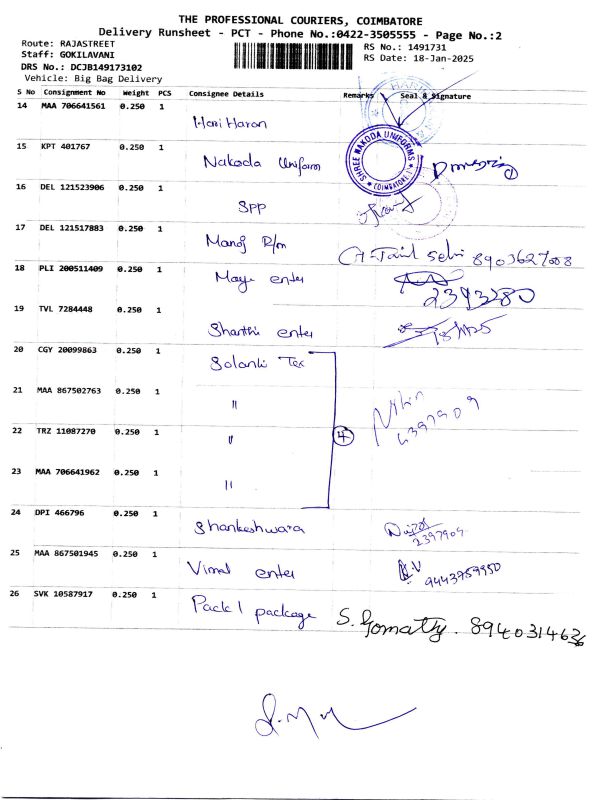 THE PROFESSIONAL COURIERS, COIMBATORE
Delivery Runsheet - PCT - Phone No.:0422-3505555 - Page No.:2
Route: RAJASTREET
Staff: GOKILAVANI
DRS No.: DCJB149173102
Vehicle: Big Bag Delivery
RS No.: 1491731
RS Date: 18-Jan-2025
S No Consignment No Weight PCS Consignee Details Remarks Seal & Signature
14 MAA 706641561 0.250 1 Hari Haran
15 KPT 401767 0.250 1 Nakoda Uniform
SHREE NAKODA UNIFORMS
COIMBATORE-1
16 DEL 121523906 0.250 1 SPP
17 DEL 121517883 0.250 1 Manoj R/m
Tamil Selvi 8903627008
18 PLI 200511409 0.250 1 enter
2393280
19 TVL 7284448 0.250 1 Shanthi enter
20 CGY 20099863 0.250 1 Solanki Tex
21 MAA 867502763 0.250 1 "
22 TRZ 11087270 0.250 1 " 4
Nitin
4397909
23 MAA 706641962 0.250 1 "
24 DPI 466796 0.250 1 Shankeshwara
2397909
25 MAA 867501945 0.250 1 Vimal enter
9443759950
26 SVK 10587917 0.250 1 Pack 1 package S. Gomathy. 8940314636